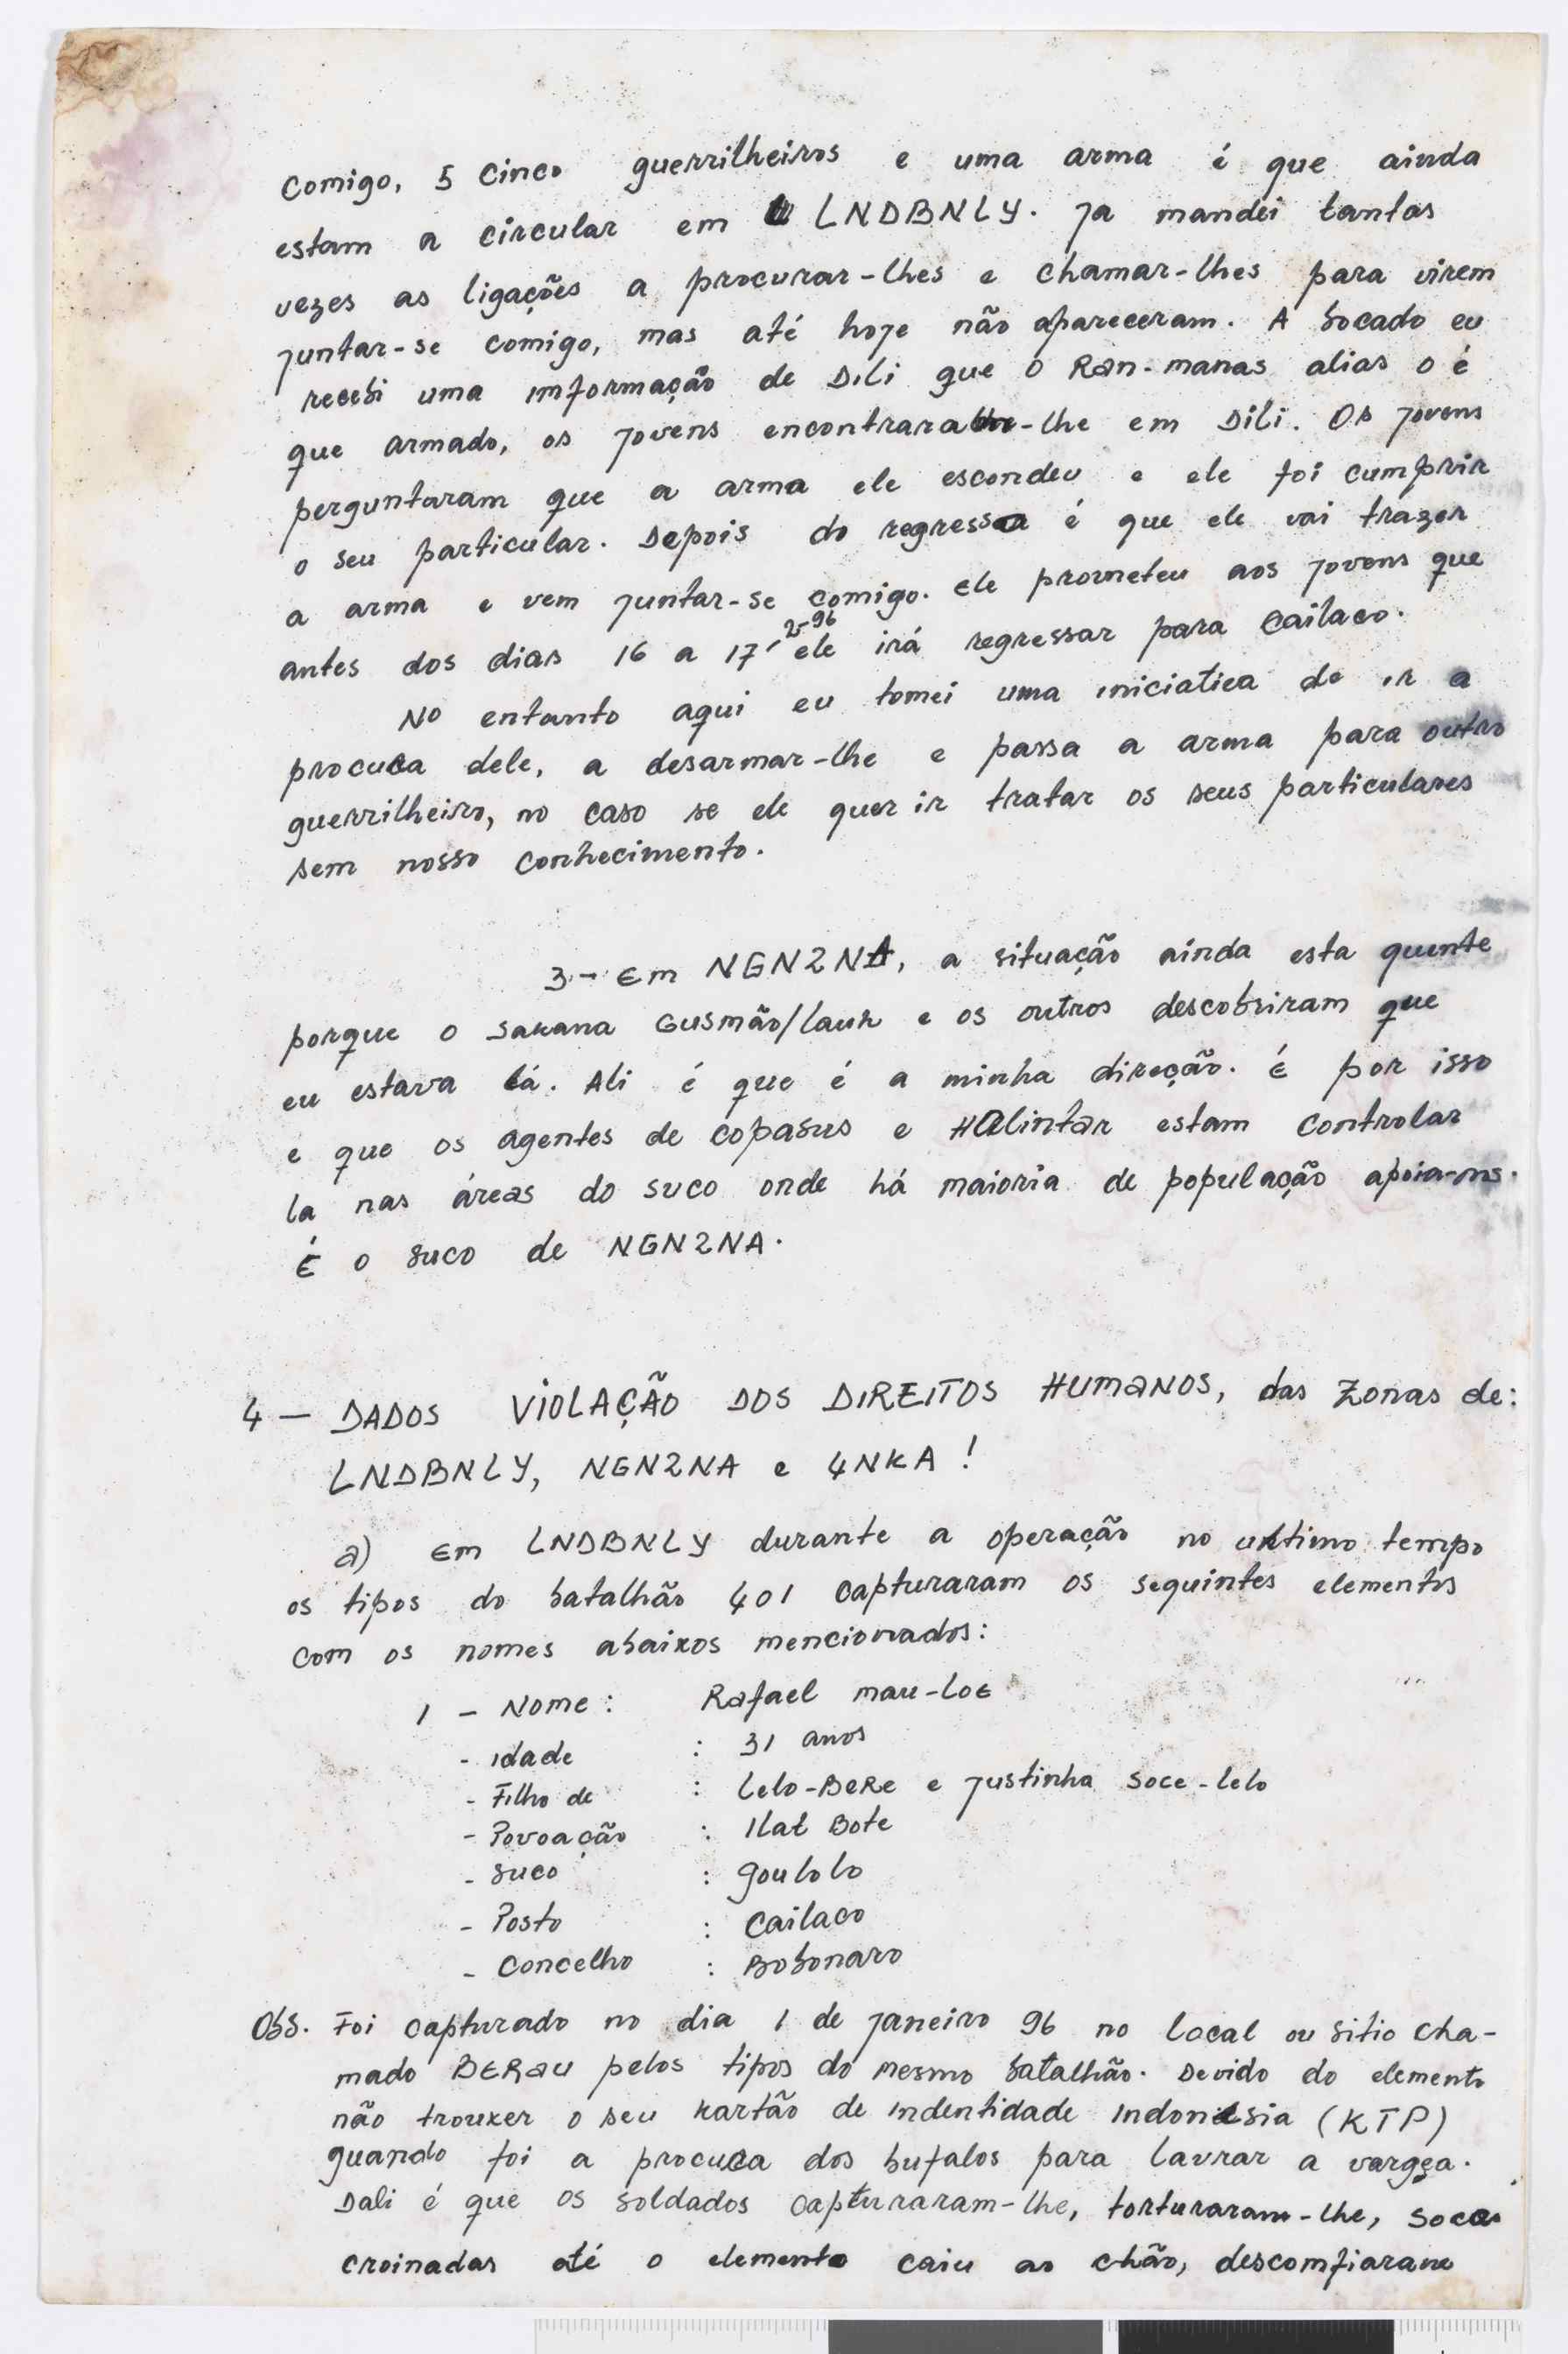 comigo, 5 cinco guerrilheiros e uma arma é que ainda
estam a circular em LNDBNLY. Ja mandei tantas
vezes as ligações a procurar-lhes e chamar-lhes para virem
juntar-se comigo, mas até hoje não apareceram. A bocado eu
recebi uma imformação de Dili que o Ran-manas alias o é
que armado, os jovens encontraram-lhe em Dili. Os jovens
perguntaram que a arma ele escondeu e ele foi cumprir
o seu particular. Depois do regresso é que ele vai trazer
a arma e vem juntar-se comigo. Ele prometeu aos jovens que
antes dos dias 16 a 17-2-96 ele irá regressar para Cailaco.
No entanto aqui eu tomei uma iniciativa de ir a
procura dele, a desarmar-lhe e passa a arma para outro
guerrilheiro, no caso se ele quer ir tratar os seus particulares
sem nosso conhecimento.
3 - Em NGN2NA, a situação ainda esta quente
porque o Sakana Gusmão/Lauk e os outros descobriram que
eu estava lá. Ali é que é a minha direção. É por isso
e que os agentes de copasus e Halintar estam controlar
la nas áreas do suco onde há maioria de população apoia-nos.
É o suco de NGN2NA.
4 — DADOS VIOLAÇÃO DOS DIREITOS HUMANOS, das Zonas de:
LNDBNLY, NGN2NA e 4NKA!
a) Em LNDBNLY durante a operação no ultimo tempo
os tipos do batalhão 401 capturaram os seguintes elementos
com os nomes abaixos mencionados:
1 - Nome: Rafael mau-Loe
- idade : 31 anos
- Filho de : Lelo-Bere e Justinha Soce-lelo
- Povoação : Ilat Bote
- Suco : goulolo
- Posto : Cailaco
- Concelho : Bobonaro
Obs. Foi capturado no dia 1 de Janeiro 96 no local ou sitio cha-
mado BERau pelos tipos do mesmo batalhão. Devido do elemento
não trouxer o seu kartão de indentidade indonésia (KTP)
quando foi a procura dos bufalos para lavrar a vargea.
Dali é que os soldados capturaram-lhe, torturaram-lhe, socos
croinadas até o elemento caiu ao chão, descomfiaram